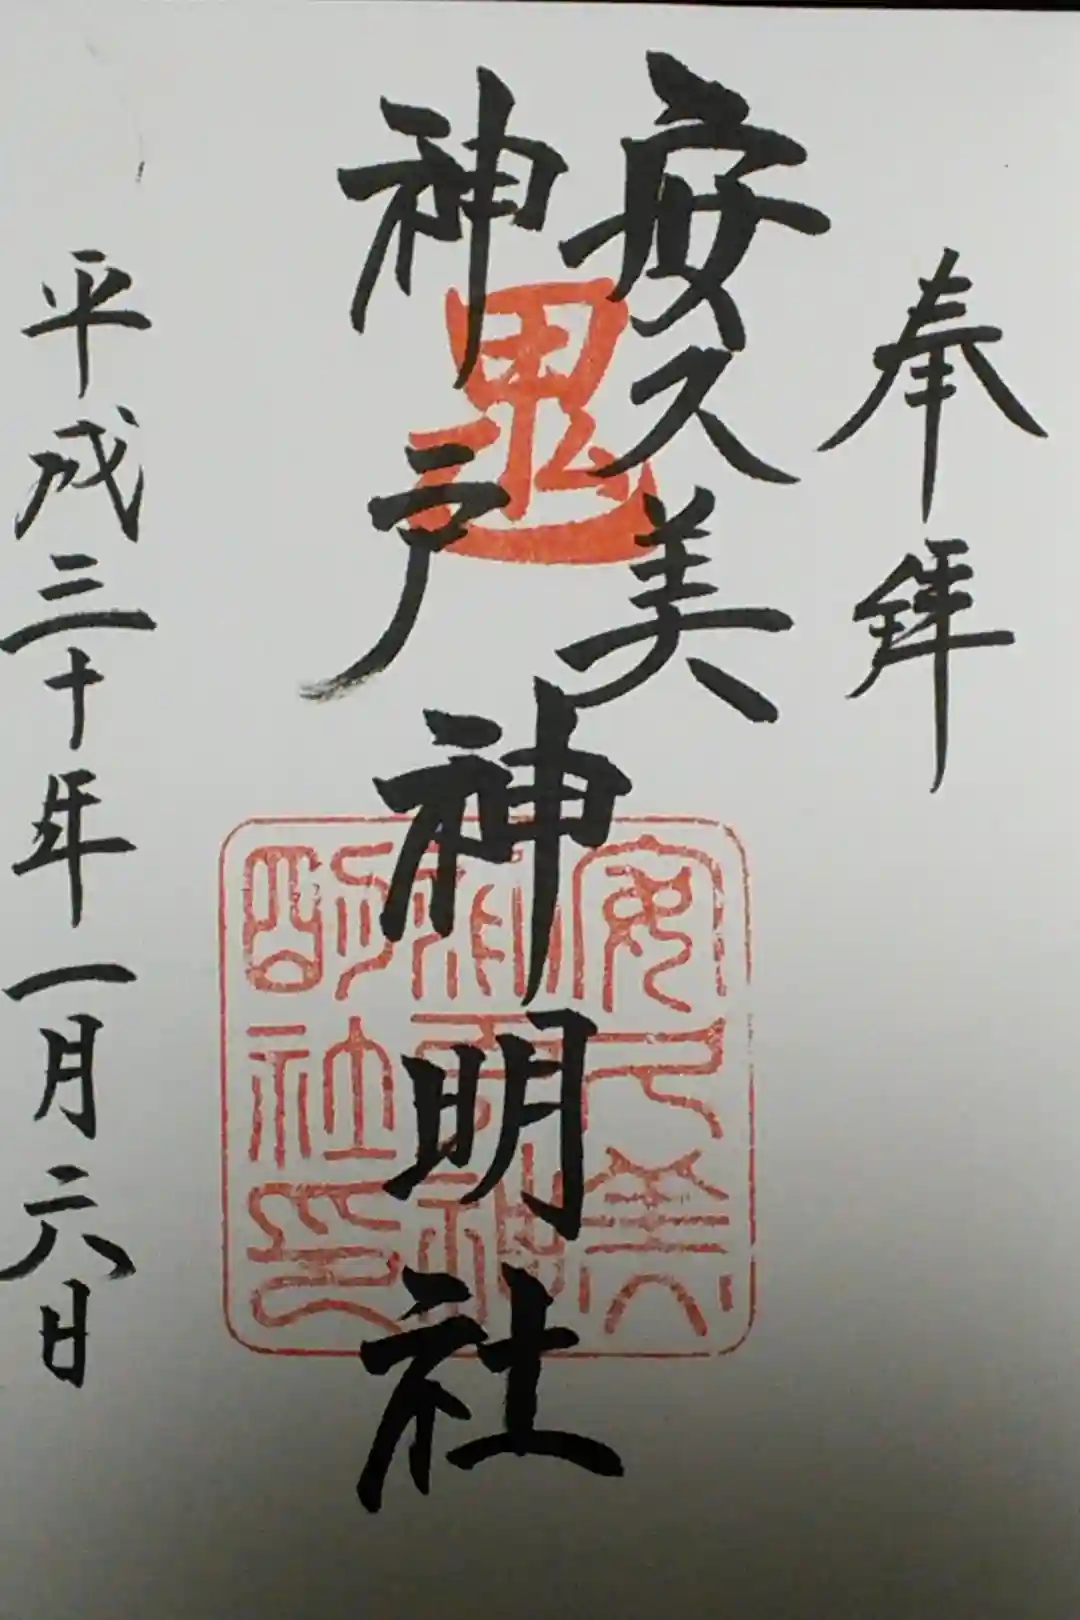 奉拝
安久美
神戸
神明社
鬼
安久美神戸神明社印
平成三十年一月六日